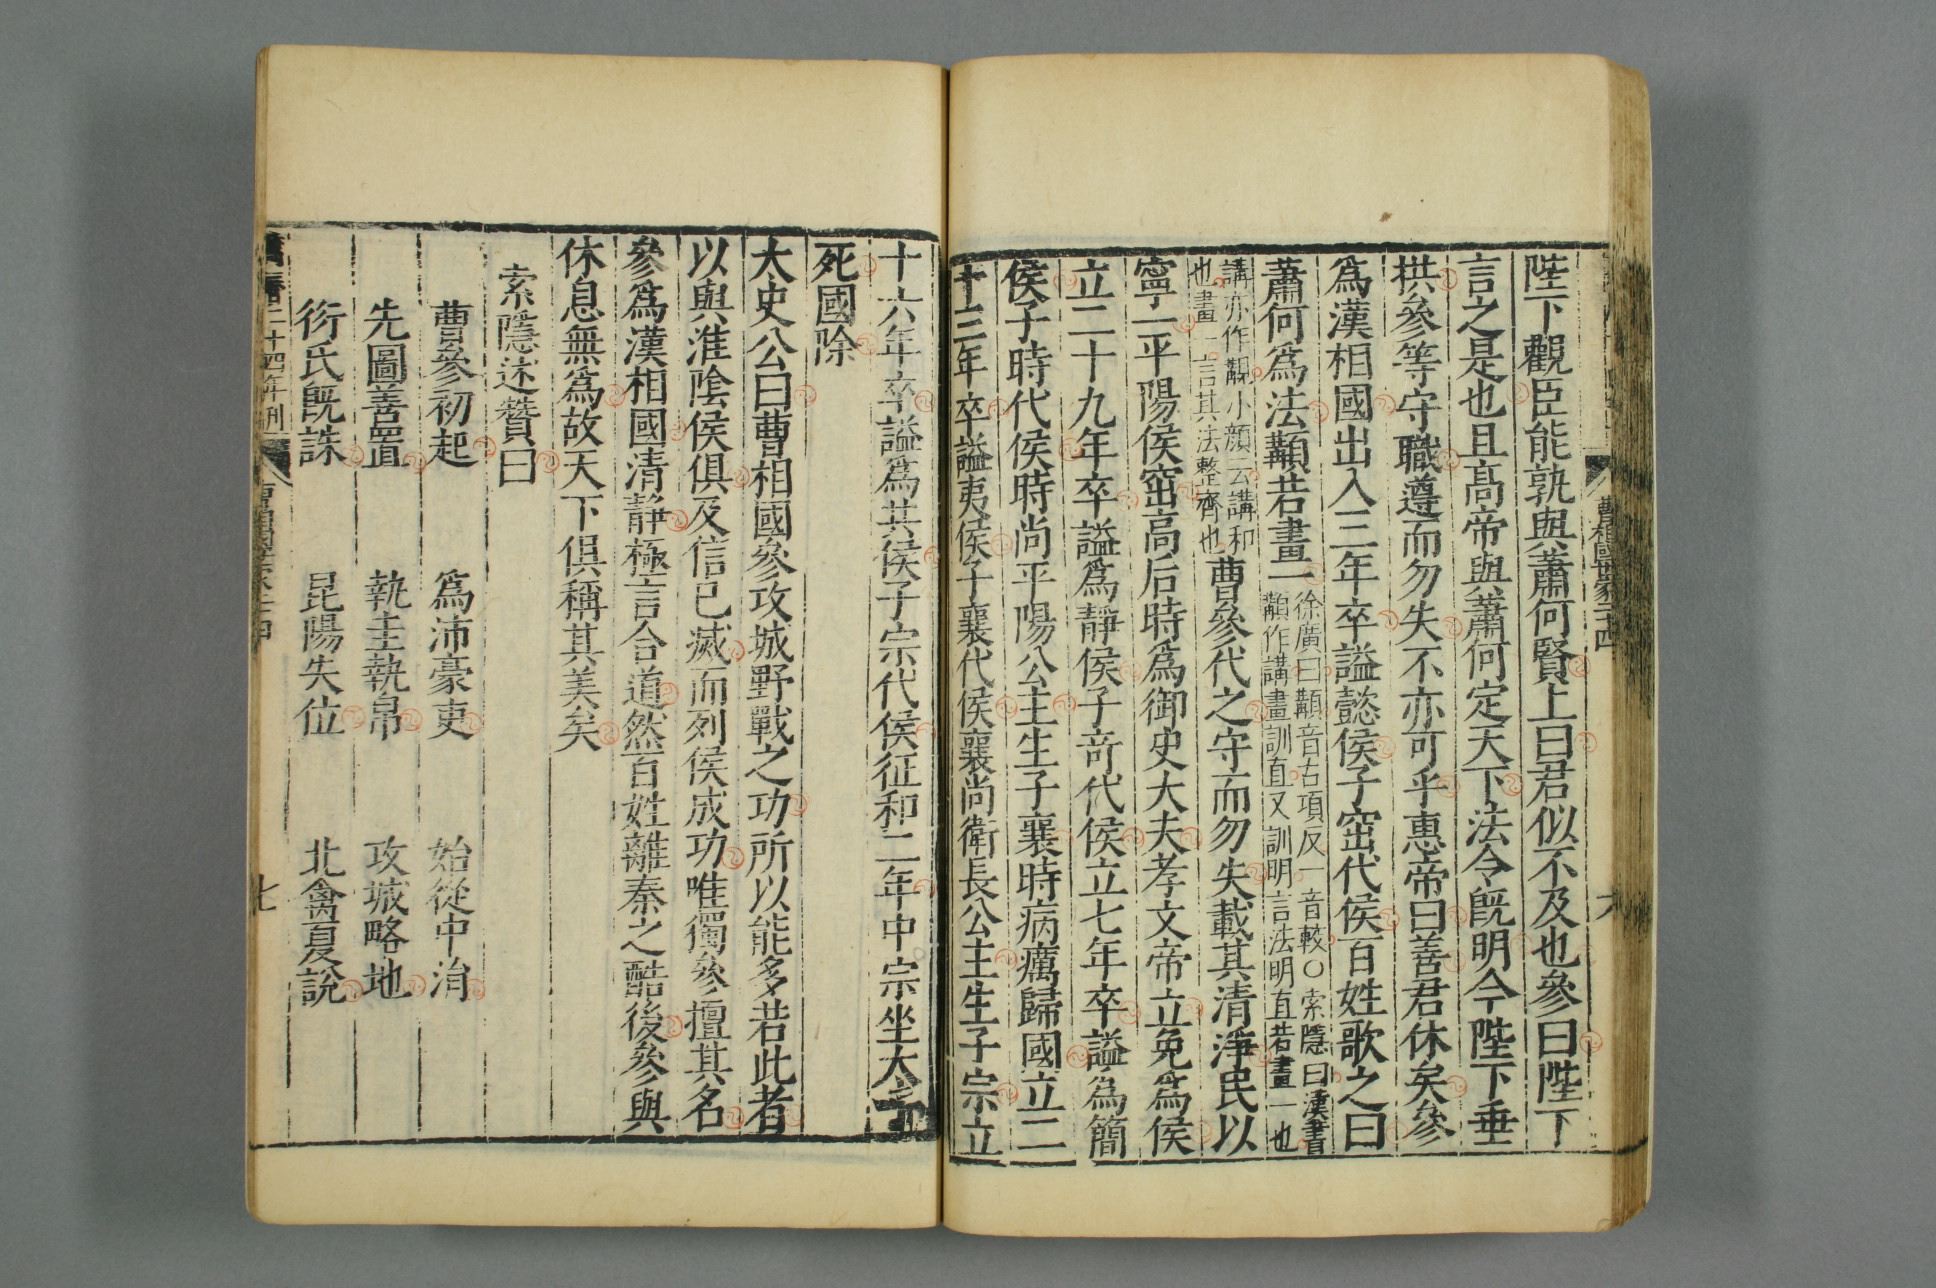 曹相國世家二十四
六
陛下觀臣能孰與蕭何賢上曰君似不及也參曰陛下
言之是也且高帝與蕭何定天下法令旣明今陛下垂
拱參等守職遵而勿失不亦可乎惠帝曰善君休矣參
爲漢相國出入三年卒謚懿侯子窋代侯百姓歌之曰
蕭何爲法顜若畫一
徐廣曰顜音古項反一音較○索隱曰漢書
顜作講畫訓直又訓明言法明直若畫一也
講亦作觀小顏云講和
也畫一言其法整齊也
曹參代之守而勿失載其清淨民以
寧一平陽侯窋高后時爲御史大夫孝文帝立免爲侯
立二十九年卒謚爲靜侯子竒代侯立七年卒謚爲簡
侯子時代侯時尚平陽公主生子襄時病癘歸國立二
十三年卒謚夷侯子襄代侯襄尚衛長公主生子宗立
十六年卒謚爲共侯子宗代侯征和二年中宗坐太子
死國除
太史公曰曹相國參攻城野戰之功所以能多若此者
以與淮陰侯俱及信已滅而列侯成功唯獨參擅其名
參爲漢相國清靜極言合道然百姓離秦之酷後參與
休息無爲故天下俱稱其美矣
索隱述贊曰
曹參初起 爲沛豪吏 始從中涓
先圖善置 執圭執帛 攻城略地
衍氏旣誅 昆陽失位 北禽夏說
二十四年刊
七